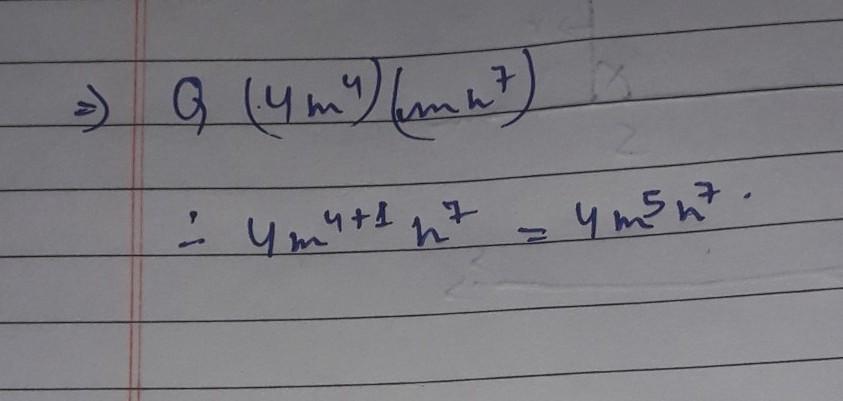 ⇒ Q (4m⁴)(mn⁷)
∴ 4m⁴⁺¹ n⁷ = 4m⁵n⁷.